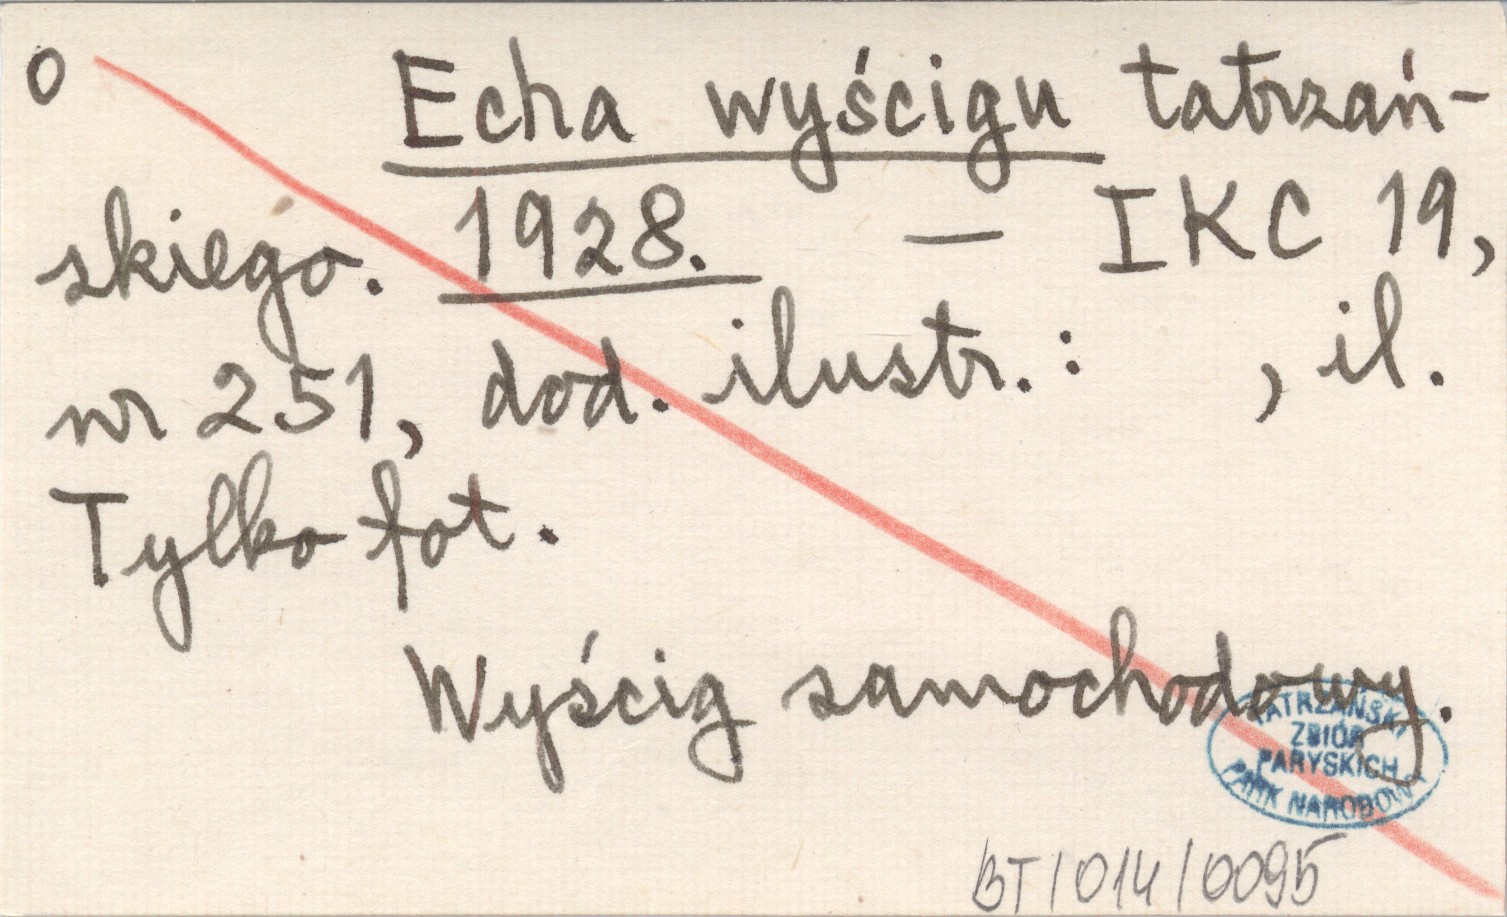 o Echa wyścigu tatrzań-
skiego. 1928. — IKC 19,
nr 251, dod. ilustr.: , il.
Tylko fot.
Wyścig samochodowy.
TATRZAŃSKI
ZBIÓR
PARYSKICH
PARK NARODOWY
BT/014/0095